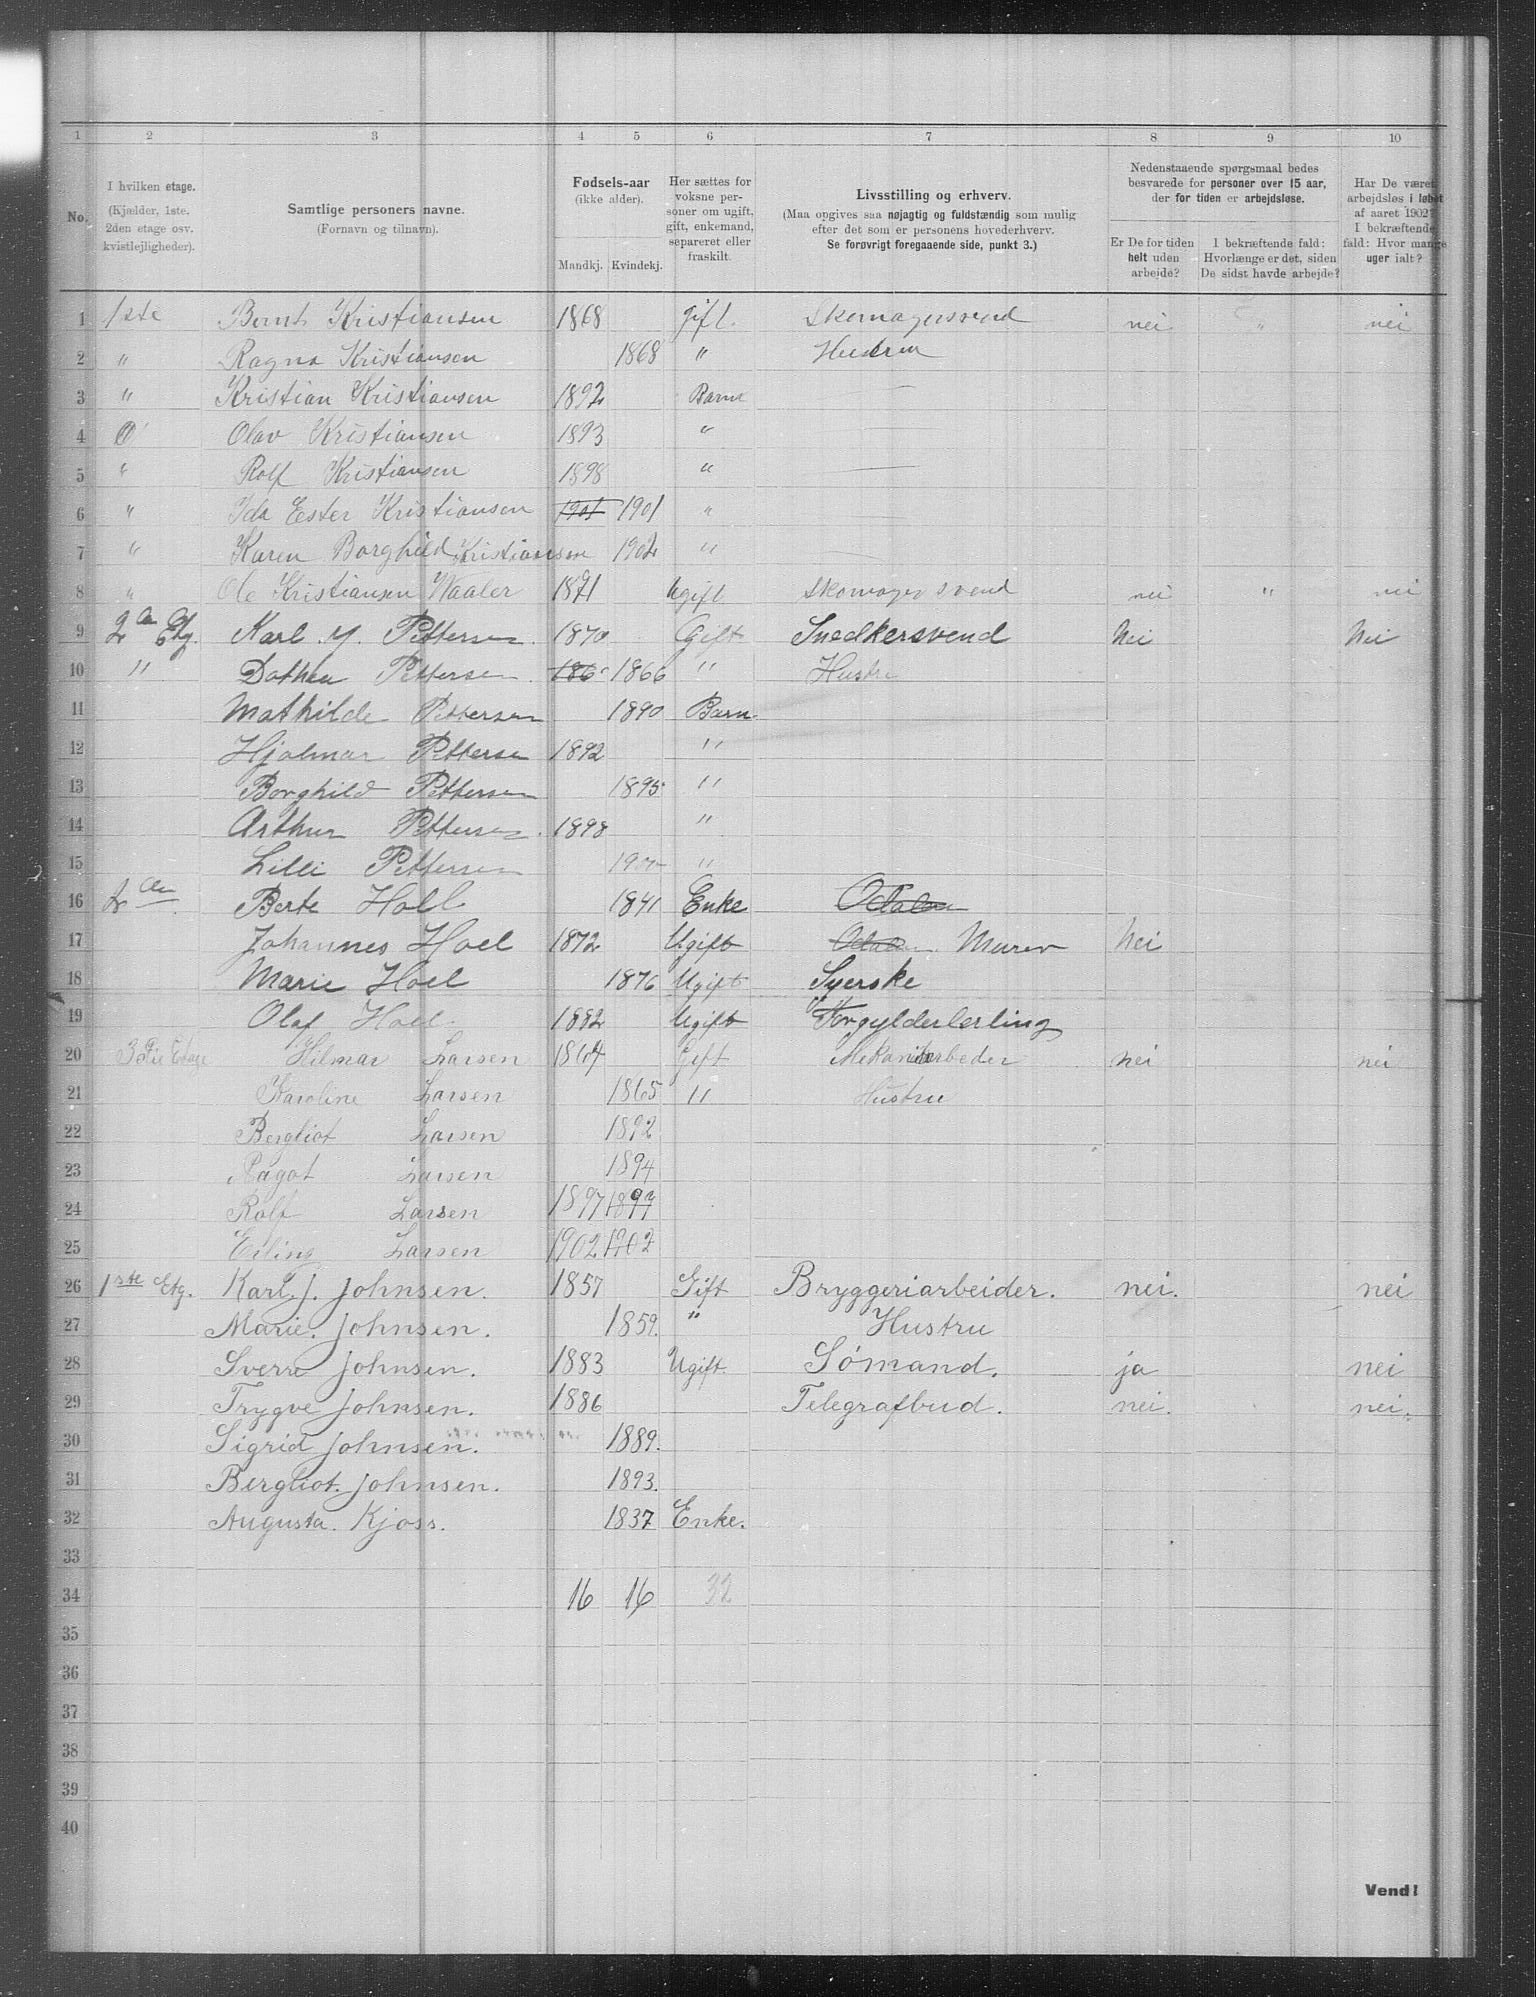 1 2 3 4 5 6 7 8 9 10
No.
I hvilken etage.
(Kjælder, 1ste.
2den etage osv.
kvistlejligheder).
Samtlige personers navne.
(Fornavn og tilnavn).
Fødsels-aar
(ikke alder).
Mandkj. Kvindekj.
Her sættes for
voksne per-
soner om ugift,
gift, enkemand,
separeret eller
fraskilt.
Livsstilling og erhverv.
(Maa opgives saa nøjagtig og fuldstændig som mulig
efter det som er personens hovederhverv.
Se forøvrigt foregaaende side, punkt 3.)
Nedenstaaende spørgsmaal bedes
besvarede for personer over 15 aar,
der for tiden er arbejdsløse.
Er De for tiden
helt uden
arbejde?
I bekræftende fald:
Hvorlænge er det, siden
De sidst havde arbejde?
Har De været
arbejdsløs i løbet
af aaret 1902?
I bekræftende
fald: Hvor mange
uger ialt?
1 1ste Bernt Kristiansen 1868 gift. Skomagersvend nei " nei
2 " Ragna Kristiansen 1868 " Hustru
3 " Kristian Kristiansen 1892 Barn
4 Olav Kristiansen 1893 "
5 " Rolf Kristiansen 1898 "
6 " Ida Ester Kristiansen 1901 1901 "
7 " Karen Borghild Kristiansen 1902 "
8 " Ole Kristiansen Waaler 1871 Ugift Skomager svend nei " nei
9 2 Etg. Karl Pettersen 1870 Gift Snedkersvend Nei Nei
10 " Dothea Pettersen 186 1866 " Hustru
11 Mathilde Pettersen 1890 Barn
12 Hjalmar Pettersen 1892 "
13 Borghild Pettersen 1895 "
14 Arthur Pettersen 1898 "
15 Lilli Pettersen 1900 "
16 2 Berte Holl 1841 Enke Odalen
17 Johannes Hoel 1872 Ugift Odalen Murer Nei
18 Marie Hoel 1876 Ugift Syerske
19 Olaf Hoel 1882 Ugift Forgylderlerling
20 3die Etage Hilmar Larsen 1864 Gift Mekanikerbeder nei nei
21 Karoline Larsen 1865 " Hustru
22 Bergliot Larsen 1892
23 Ragot Larsen 1894
24 Rolf Larsen 1897 1897
25 Eiling Larsen 1902 1902
26 1ste Etg. Karl. J. Johnsen. 1857 Gift Bryggeriarbeider. nei. nei
27 Marie. Johnsen. 1859. " Hustru
28 Sverre Johnsen. 1883 Ugift. Sømand. ja nei
29 Trygve Johnsen. 1886 Telegrafbud. nei. nei.
30 Sigrid Johnsen. 1889.
31 Bergliot. Johnsen. 1893.
32 Augusta. Kjoss. 1837 Enke.
33
34 16 16 32
35
36
37
38
39
40
Vend!